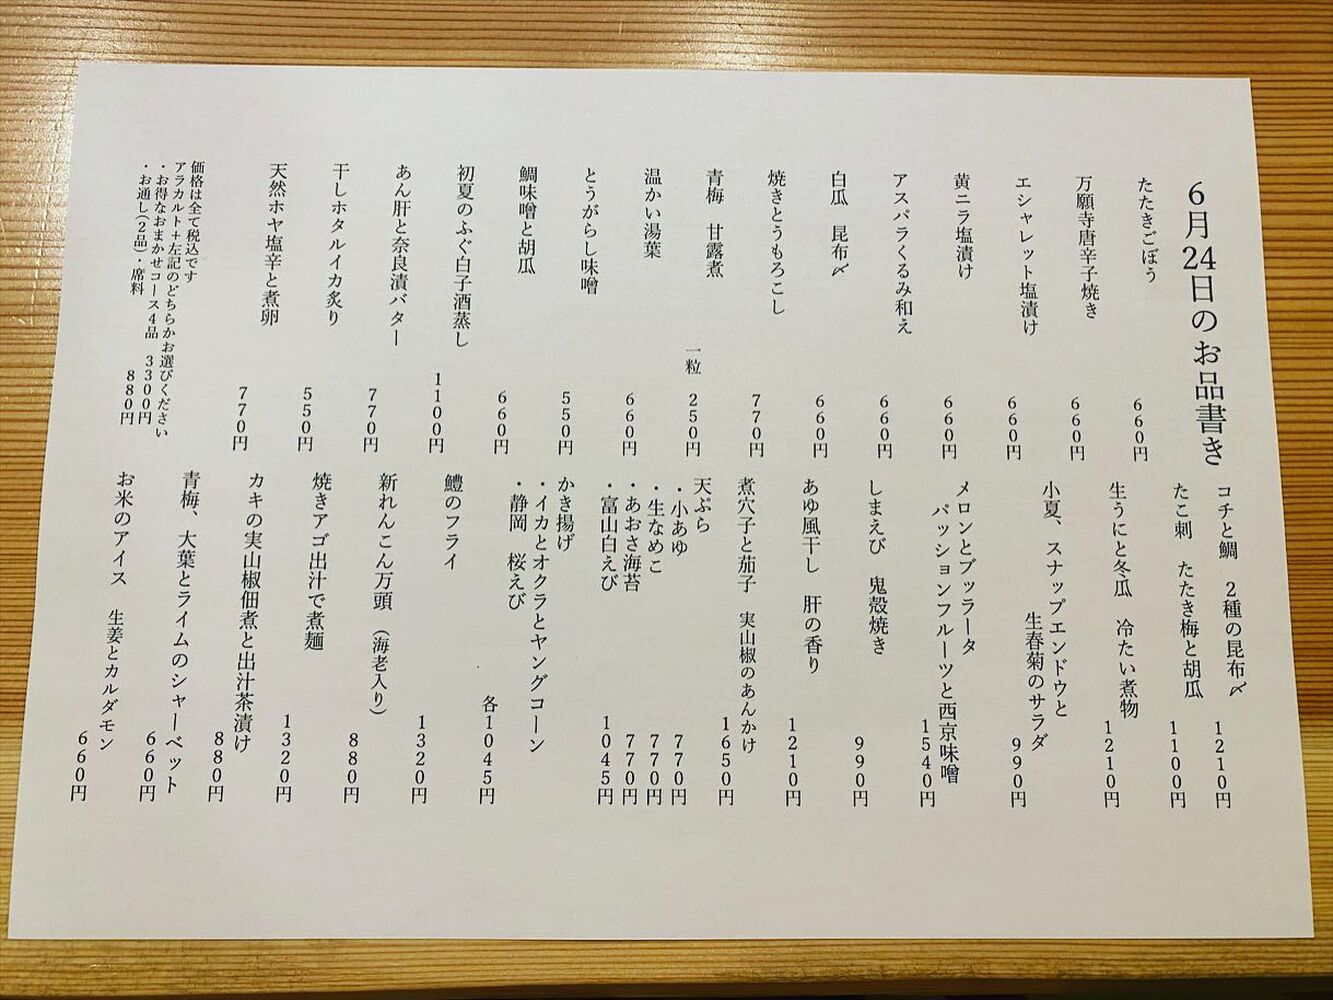 6月24日のお品書き
たたきごぼう
660円
万願寺唐辛子焼き
660円
エシャレット塩漬け
660円
黄ニラ塩漬け
660円
アスパラくるみ和え
660円
白瓜　昆布〆
660円
焼きとうもろこし
770円
青梅　甘露煮
一粒　250円
温かい湯葉
660円
とうがらし味噌
550円
鯛味噌と胡瓜
660円
初夏のふぐ白子酒蒸し
1100円
あん肝と奈良漬バター
770円
干しホタルイカ炙り
550円
天然ホヤ塩辛と煮卵
770円
価格は全て税込です
アラカルト＋左記のどちらかお選びください
・お得なおまかせコース4品　3300円
・お通し(2品)・席料　880円
コチと鯛　2種の昆布〆
1210円
たこ刺　たたき梅と胡瓜
1100円
生うにと冬瓜　冷たい煮物
1210円
小夏、スナップエンドウと
生春菊のサラダ
990円
メロンとブッラータ
パッションフルーツと西京味噌
1540円
しまえび　鬼殻焼き
990円
あゆ風干し　肝の香り
1210円
煮穴子と茄子　実山椒のあんかけ
1650円
天ぷら
・小あゆ　770円
・生なめこ　770円
・あおさ海苔　770円
・富山白えび　1045円
かき揚げ
・イカとオクラとヤングコーン
・静岡　桜えび
各1045円
鱧のフライ
1320円
新れんこん万頭　(海老入り)
880円
焼きアゴ出汁で煮麺
1320円
カキの実山椒佃煮と出汁茶漬け
880円
青梅、大葉とライムのシャーベット
660円
お米のアイス　生姜とカルダモン
660円